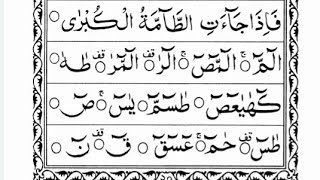 فَاِذَا جَآءَتِ الطَّآمَّةُ الْكُبْرٰى ○
الٓمّٓ ○ۚ الٓمّٓصٓ ○ۚ الٓرٰ ○قف الٓمّٓرٰ ○قف طٰهٰ ○
كٓهٰيٰعٓصٓ ○ طٰسٓمّٓ ○ يٰسٓ ○ صٓ
طٰسٓ ○قف حٰمٓ ○ۚ عٓسٓقٓ ○ قٓ ○قف نٓ